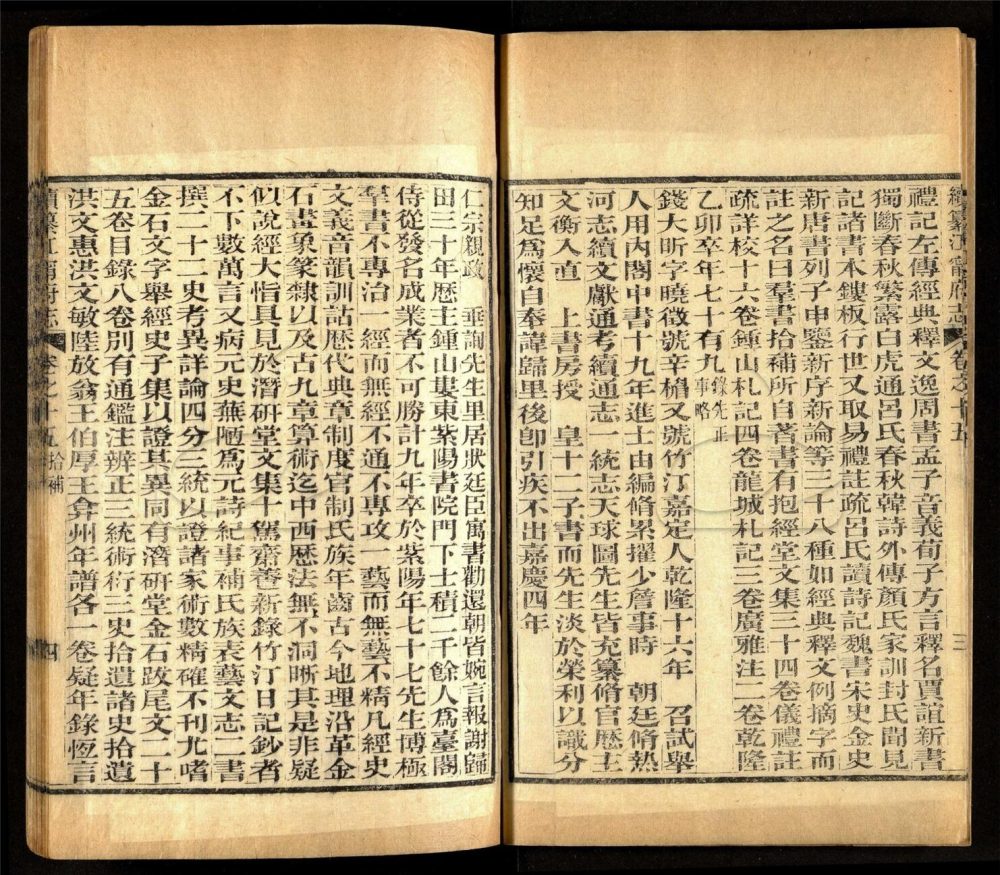 續纂江寧府志 卷之十五 三
禮記左傳經典釋文逸周書孟子音義荀子方言釋名賈誼新書
獨斷春秋繁露白虎通呂氏春秋韓詩外傳顏氏家訓封氏聞見
記諸書本鏤板行世又取易禮註疏呂氏讀詩記魏書宋史金史
新唐書列子申鑒新序新論等三十八種如經典釋文例摘字而
註之名曰羣書拾補所自著書有抱經堂文集三十四卷儀禮註
疏詳校十六卷鍾山札記四卷龍城札記三卷廣雅注二卷乾隆
乙卯卒年七十有九錄先正事略
錢大昕字曉徵號辛楣又號竹汀嘉定人乾隆十六年 召試舉
人用內閣中書十九年進士由編脩累擢少詹事時 朝廷脩熱
河志續文獻通考續通志一統志天球圖先生皆充纂脩官歷主
文衡入直 上書房授 皇十二子書而先生淡於榮利以識分
知足爲懷自奉諱歸里後卽引疾不出嘉慶四年
仁宗親政 垂詢先生里居狀廷臣寓書勸還朝皆婉言報謝歸
田三十年歷主鍾山婁東紫陽書院門下士積二千餘人爲臺閣
侍從發名成業者不可勝計九年卒於紫陽年七十七先生博極
羣書不專治一經而無經不通不專攻一藝而無藝不精凡經史
文義音韻訓詁歷代典章制度官制氏族年齒古今地理沿革金
石畫象篆隸以及古九章算術迄中西歷法無不洞晰其是非疑
似說經大恉具見於潛研堂文集十駕齋養新錄竹汀日記鈔者
不下數萬言又病元史蕪陋爲元詩紀事補氏族表藝文志二書
撰二十二史考異詳論四分三統以證諸家術數精確不刊尤嗜
金石文字舉經史子集以證其異同有潛研堂金石跋尾文二十
五卷目錄八卷別有通鑑注辨正三統術衍三史拾遺諸史拾遺
洪文惠洪文敏陸放翁王伯厚王弇州年譜各一卷疑年錄恆言
續纂江寧府志 卷之十五 拾補 四